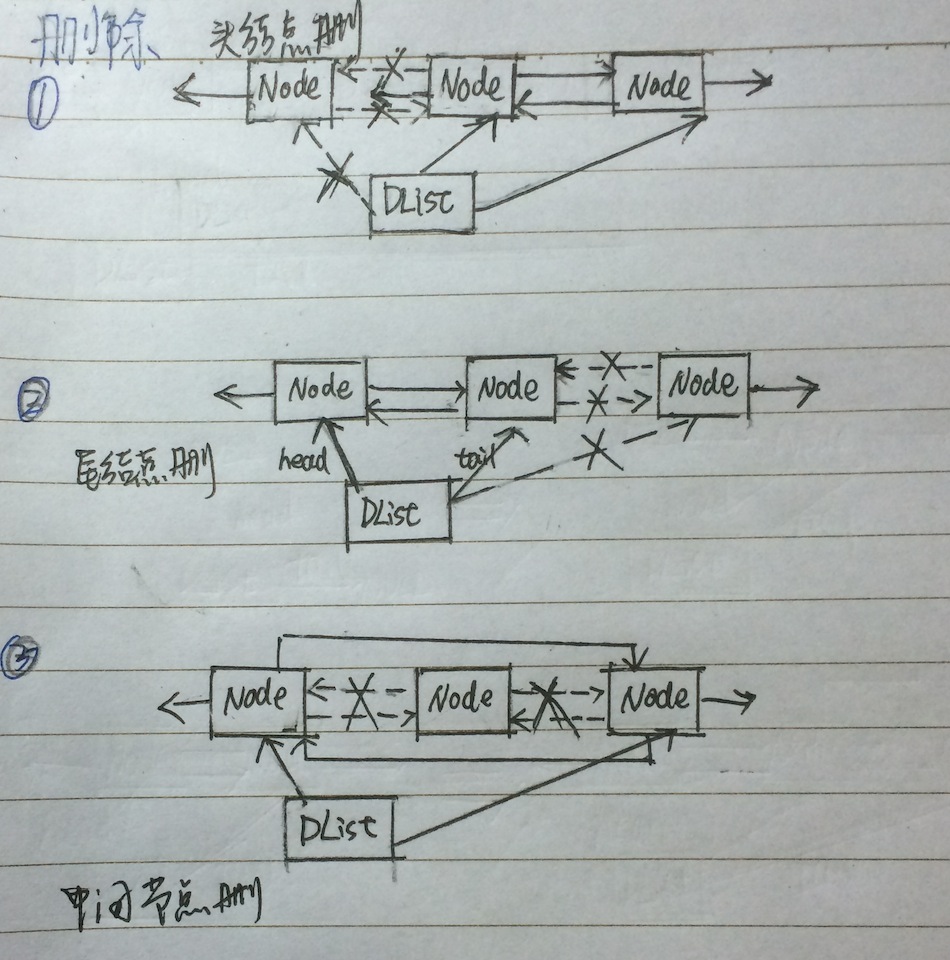 删除 头结点删
① Node Node Node
DList
② Node Node Node
尾结点删 head tail
DList
③ Node Node Node
DList
中间节点删